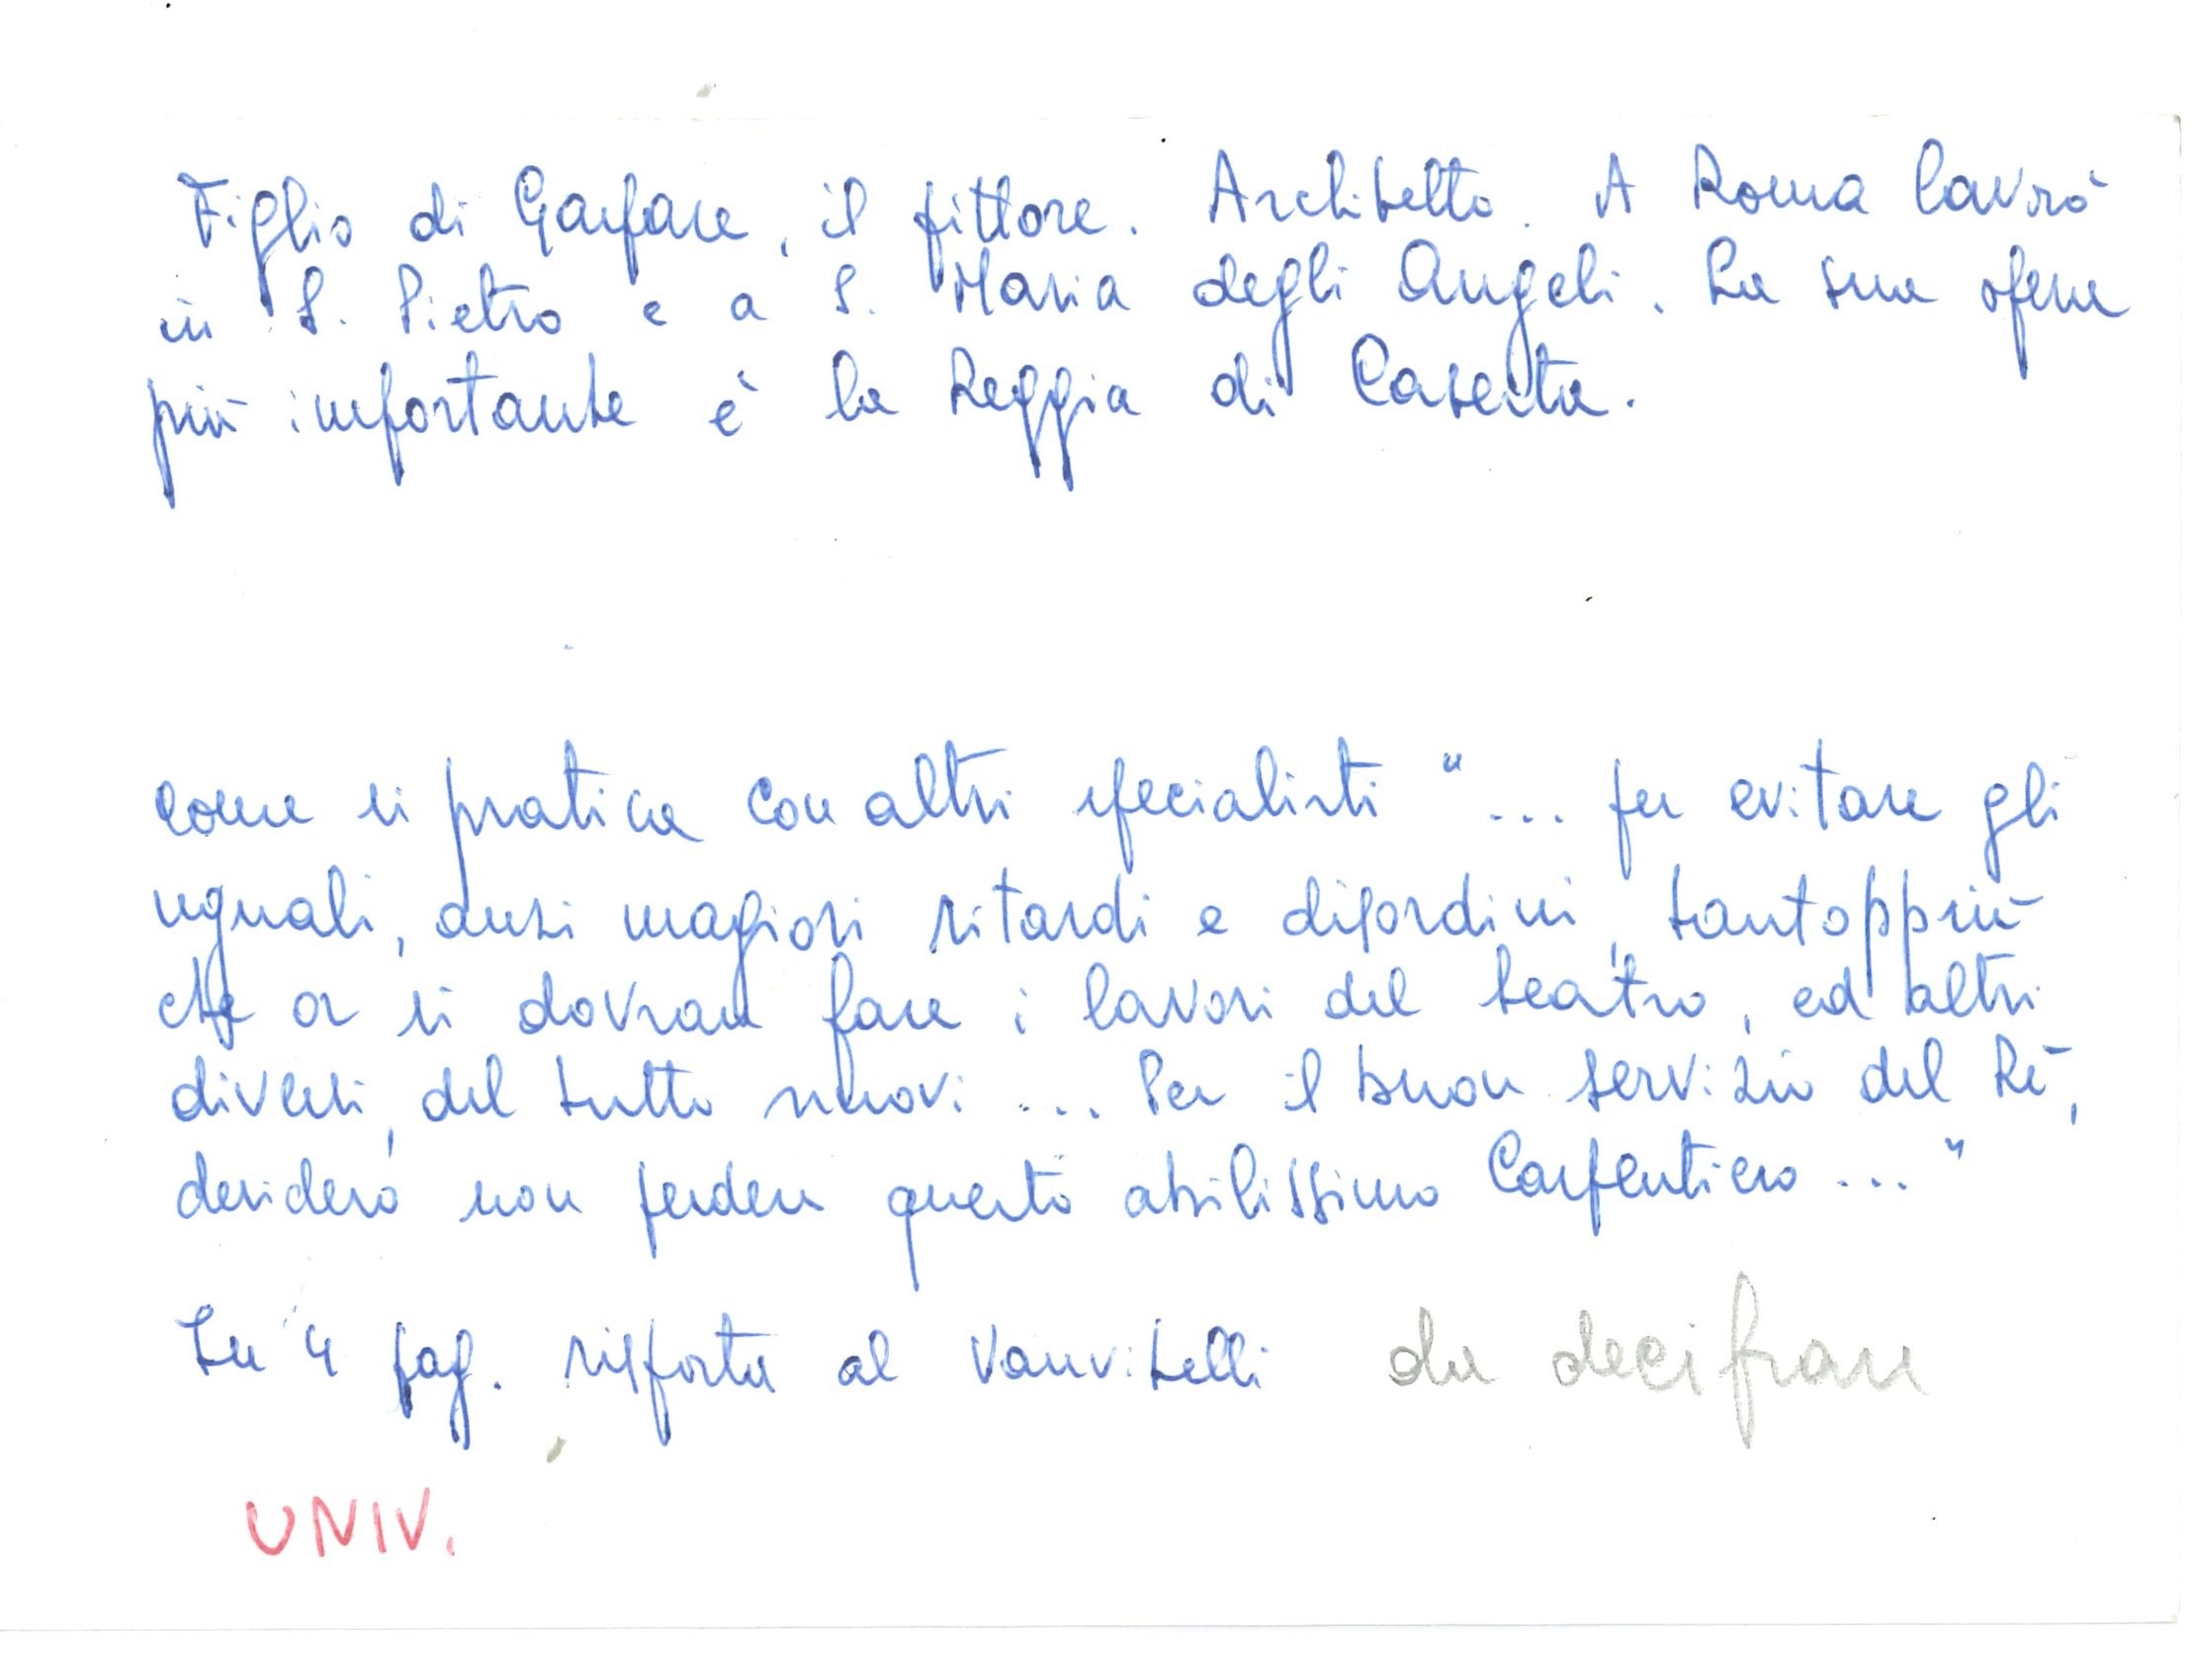 Figlio di Gaspare, il pittore. Architetto. A Roma lavorò
in S. Pietro e a S. Maria degli Angeli. La sua opera
più importante è la Reggia di Caserta.
come si pratica con altri specialisti "... per evitare gli
uguali, anzi magiori ritardi e disordini, tantoppiù
che or si dovran fare i lavori del teatro, ed altri
diversi, del tutto nuovi ... Per il buon servizio del Rè,
desidero non perdere questo abilissimo Carpentiero ..."
La 4 pag. risposta al Vanvitelli da decifrare
UNIV.